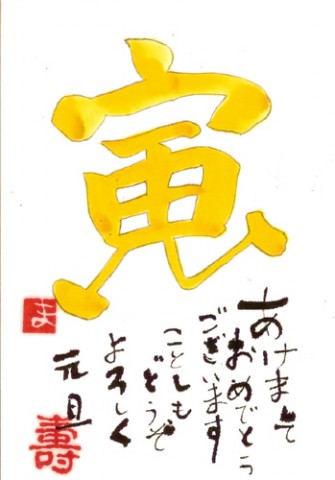 寅
あけまして
おめでとう
ございます
ことしも
どうぞ
よろしく
元旦
ま
壽